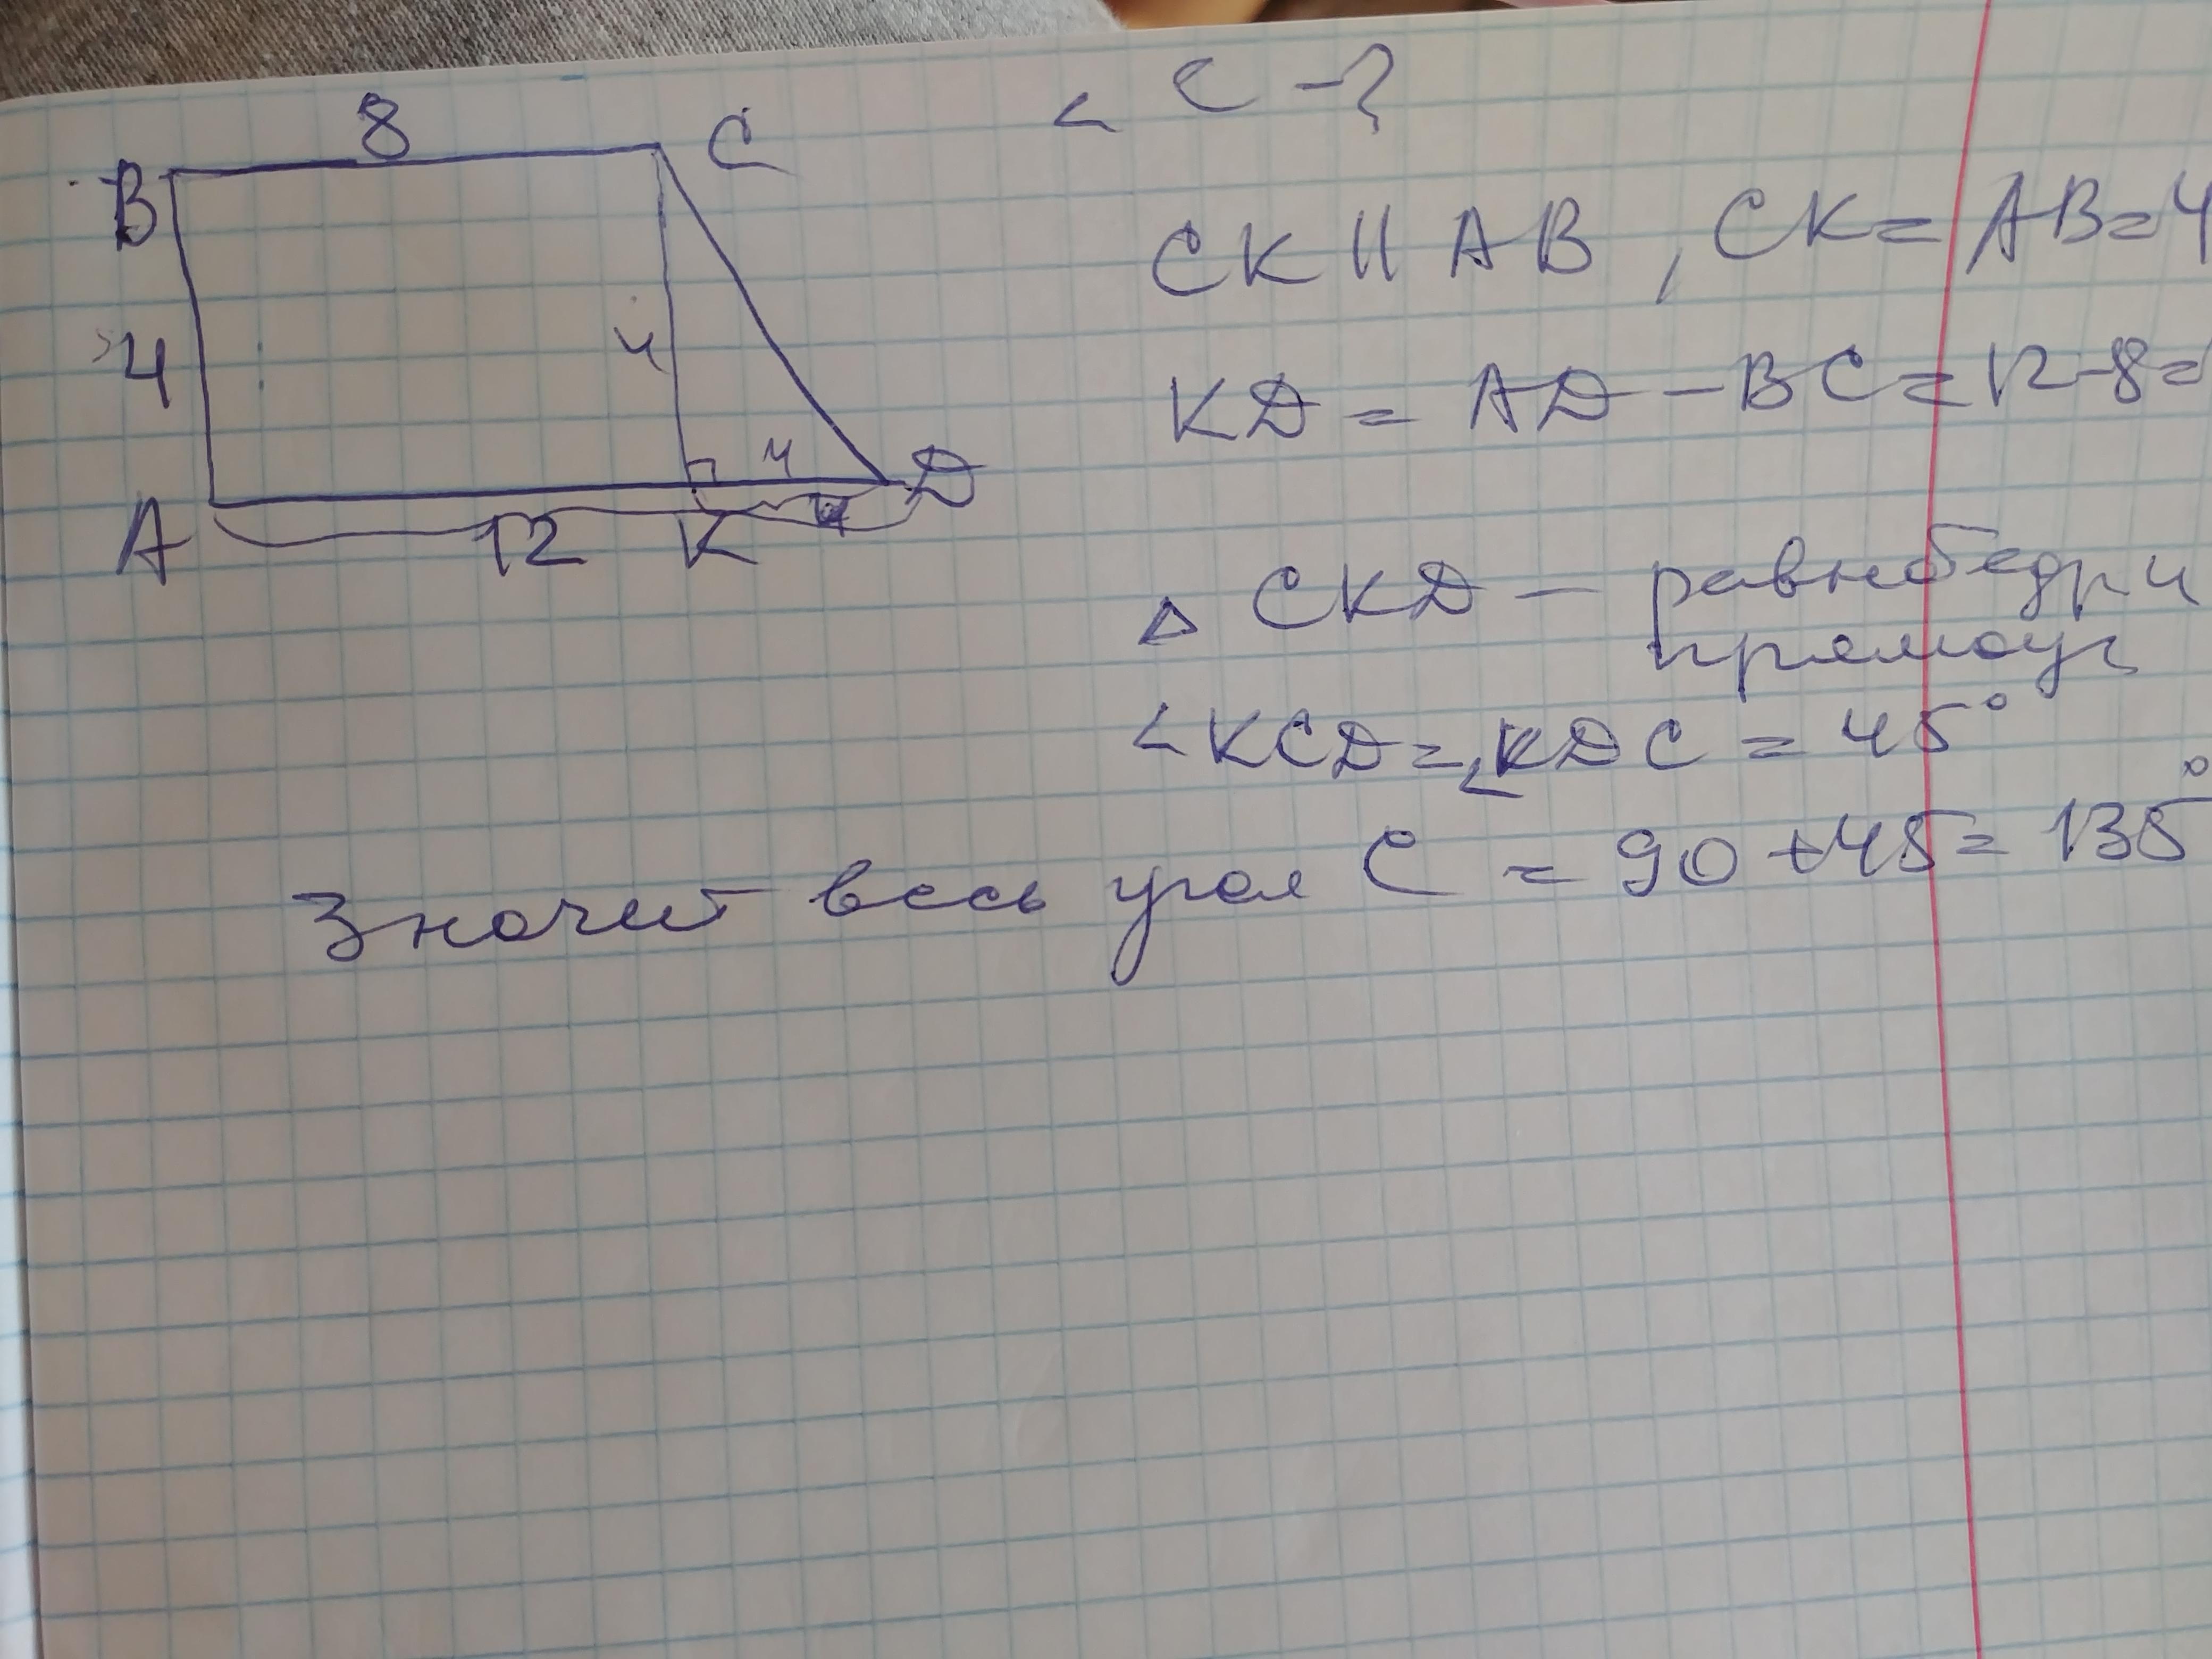 8
B
C
< C -?
4
4
4
A
12
K
4
D
CK || AB, CK = AB = 4
KD = AD - BC = 12-8=
△ CKD — равнобедр и
прямоуг
<KCD = <KDC = 45°
Значит весь угол C = 90 + 45 = 135°